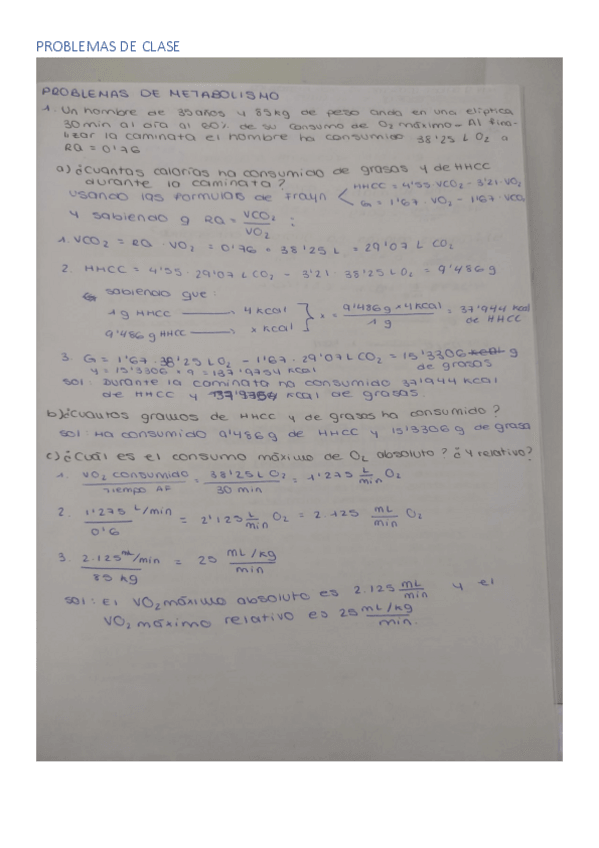 PROBLEMAS DE CLASE
PROBLEMAS DE METABOLISMO
1. Un hombre de 35 años y 85 kg de peso anda en una elíptica
30 min al día al 60% de su consumo de O2 máximo - Al fina-
lizar la caminata el hombre ha consumido 38'25 L O2 a
RQ = 0'76
a) ¿Cuantas calorías ha consumido de grasas y de HHCC
durante la caminata? HHCC = 4'55·VCO2 - 3'21·VO2
usando las formulas de Frayn < G = 1'67·VO2 - 1'67·VCO2
y sabiendo q RQ = VCO2 / VO2 :
1. VCO2 = RQ · VO2 = 0'76 · 38'25 L = 29'07 L CO2
2. HHCC = 4'55 · 29'07 L CO2 - 3'21 · 38'25 L O2 = 9'486 g
sabiendo que :
1 g HHCC → 4 kcal } x = 9'486 g x 4 kcal / 1 g = 37'944 kcal de HHCC
9'486 g HHCC → x kcal
3. G = 1'67 · 38'25 L O2 - 1'67 · 29'07 L CO2 = 15'3306 kcal g
y = 15'3306 · 9 = 137'9754 kcal de grasas
sol : Durante la caminata ha consumido 37'944 kcal
de HHCC y kcal de grasas.
b) ¿Cuantos gramos de HHCC y de grasas ha consumido?
sol : Ha consumido 9'486 g de HHCC y 15'3306 g de grasa
c) ¿Cuál es el consumo máximo de O2 absoluto? ¿Y relativo?
1. VO2 consumido / Tiempo AF = 38'25 L O2 / 30 min = 1'275 L/min O2
2. 1'275 L/min / 0'6 = 2'125 L/min O2 = 2.125 mL/min O2
3. 2.125 mL/min / 85 kg = 25 mL/kg / min
sol : El VO2 máximo absoluto es 2.125 mL/min y el
VO2 máximo relativo es 25 mL/kg / min.